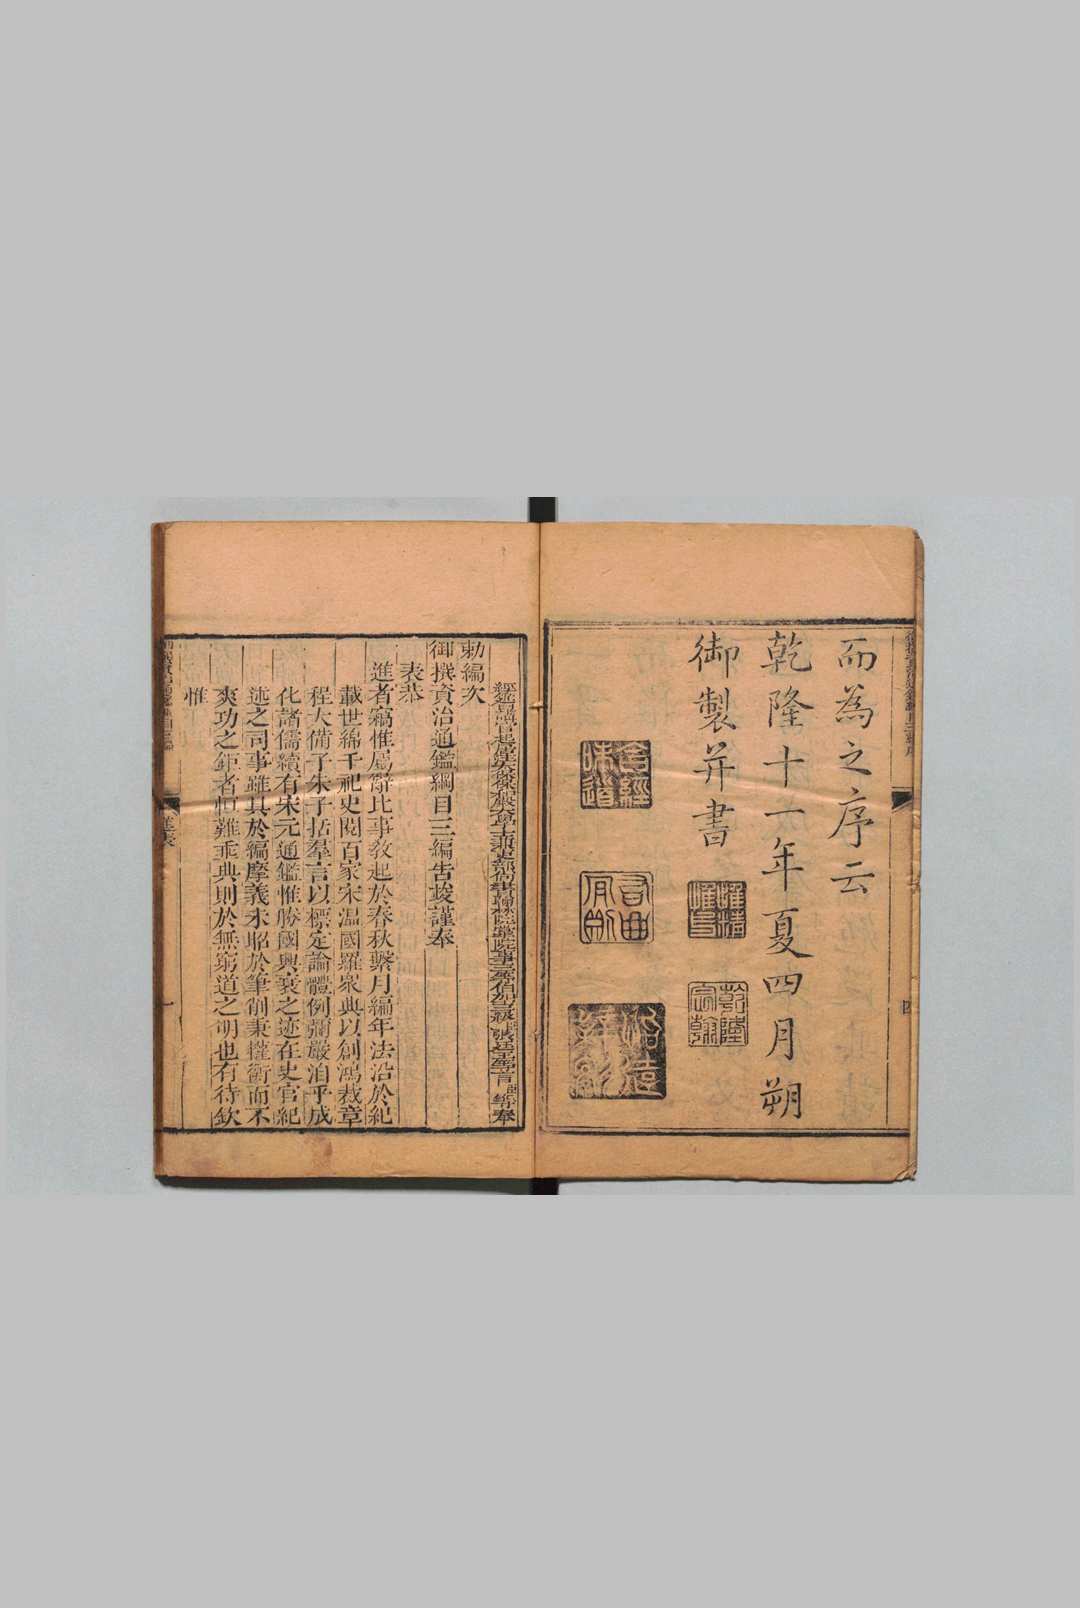 而為之序云
乾隆十一年夏四月朔
御製并書
惟精惟一
乾隆宸翰
含經味道
經筵日講官起居注太保保和殿大學士兼吏部尚書翰林院掌院事三等伯加三級臣張廷玉等言臣等奉
勅編次
御撰資治通鑑綱目三編告竣謹奉
表恭
進者竊惟屬辭比事教起於春秋繫月編年法沿於紀
載世綿千祀史閱百家宋溫國羅衆典以創鴻裁章
程大備子朱子括羣言以標定論體例彌嚴洎乎成
化諸儒續有宋元通鑑惟勝國興衰之迹在史官紀
述之司事雖具於編摩義未昭於筆削秉權衡而不
爽功之鉅者恒難垂典則於無窮道之明也有待欽
惟
進表
一